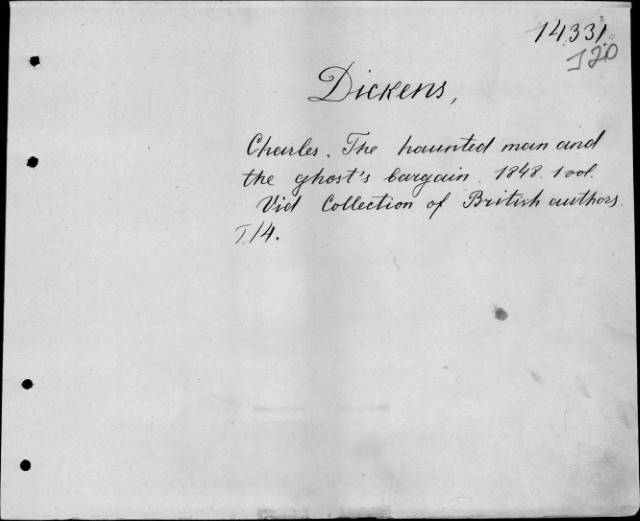 14331
J20
Dickens,
Charles. The haunted man and
the ghost's bargain. 1848. 1 vol.
Vid Collection of British authors.
T./4.